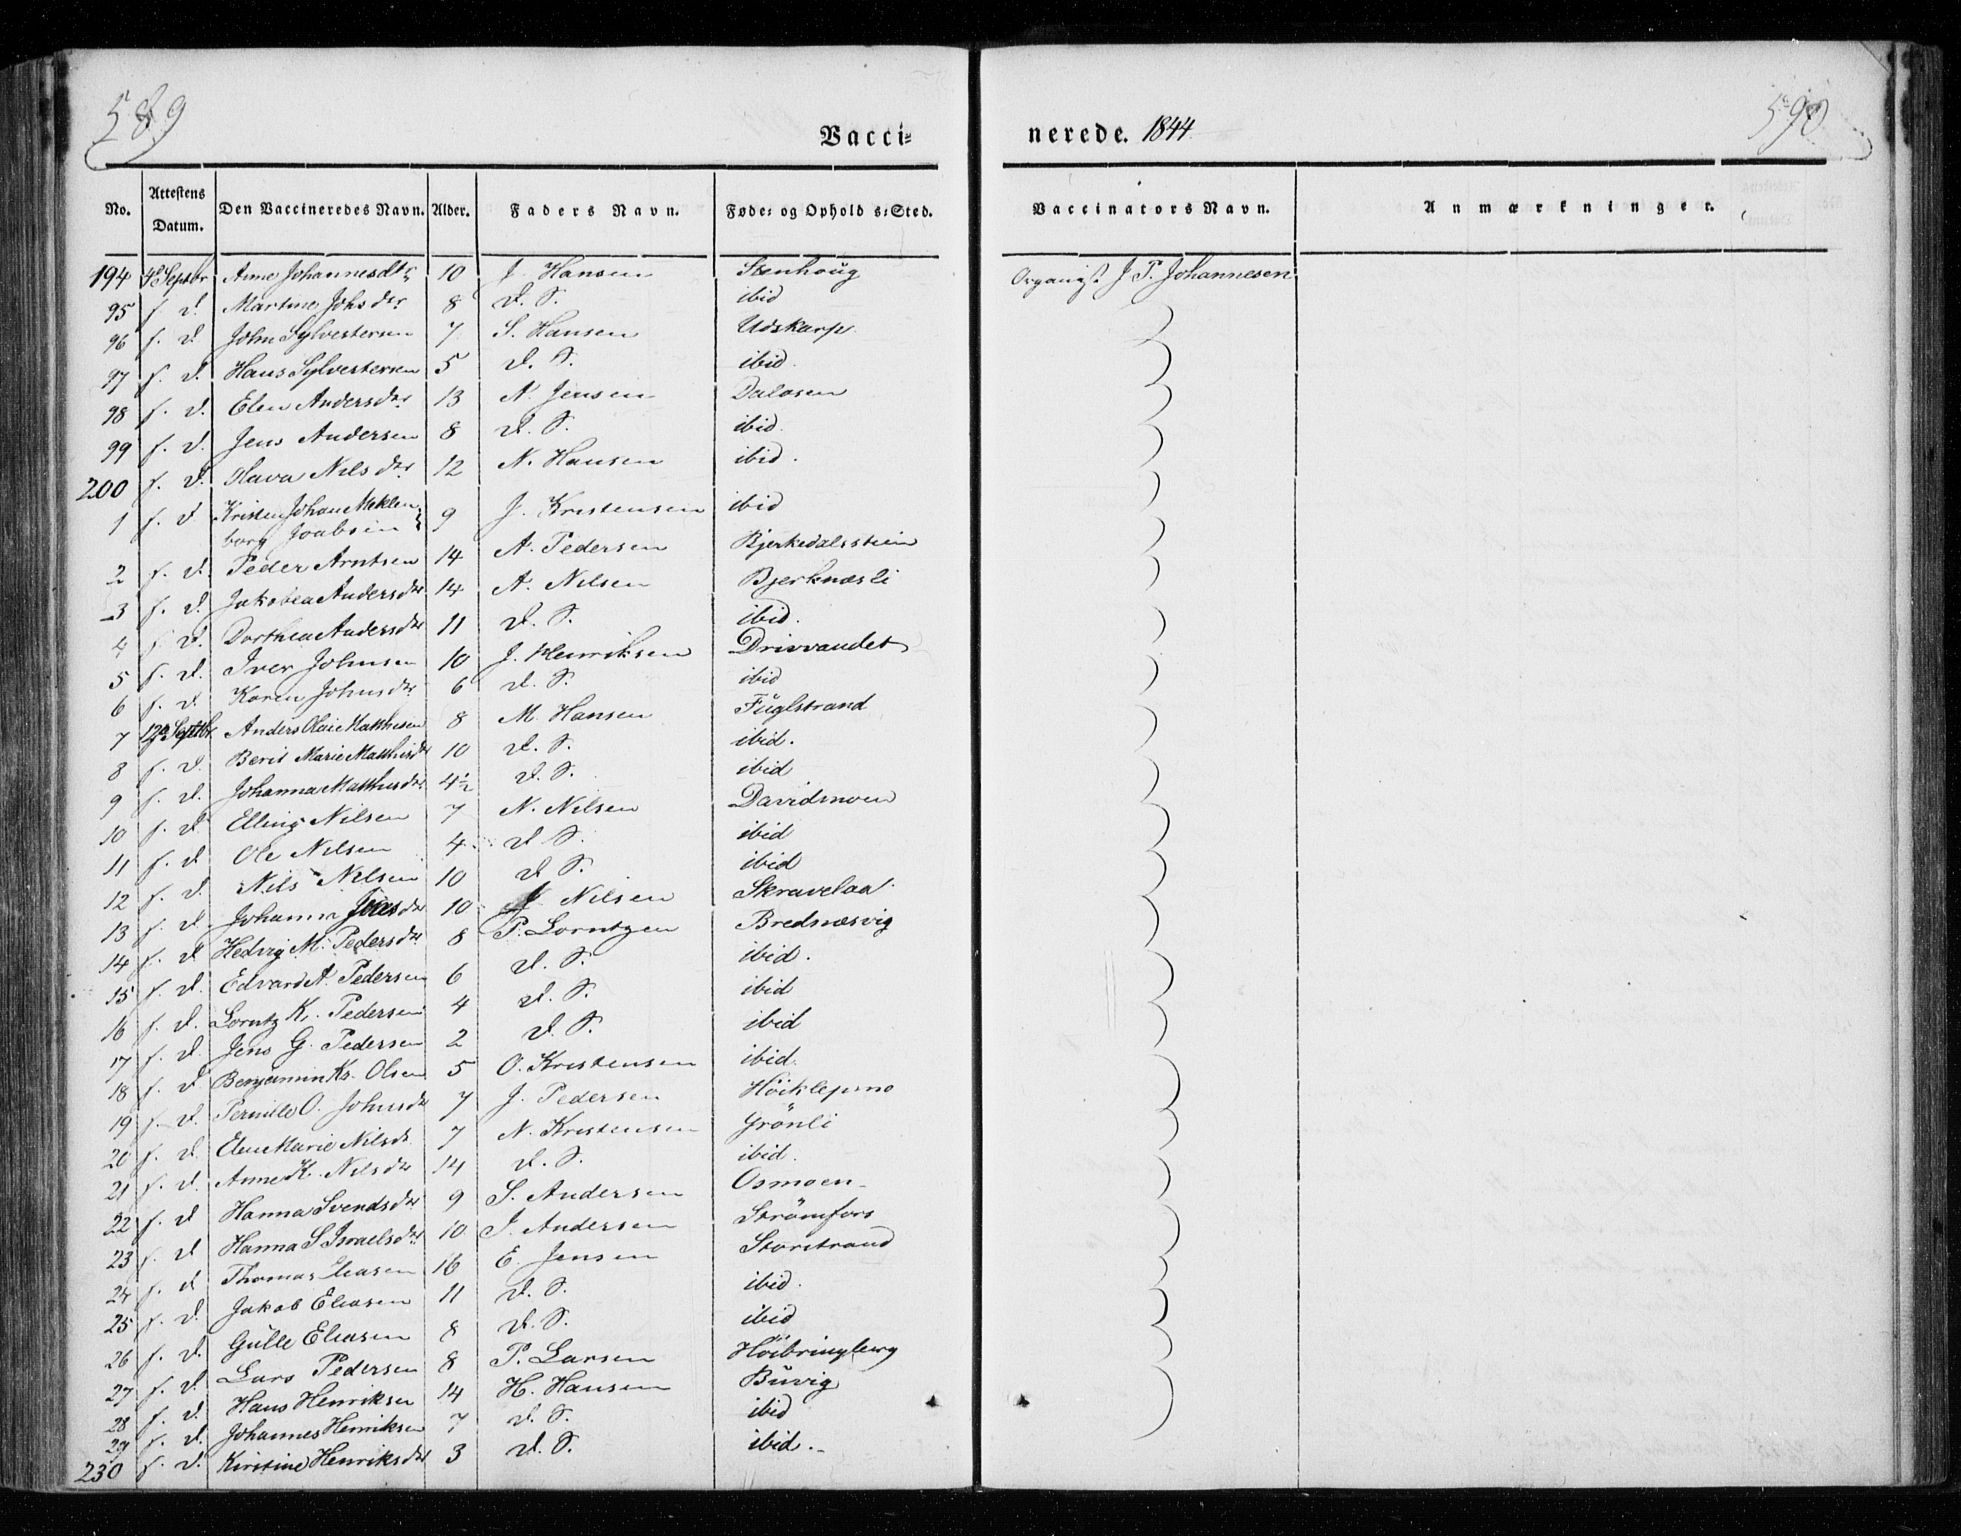 589
Vacci-
nerede. 1844
590
No. Attestens Datum. Den Vaccineredes Navn. Alder. Faders Navn. Føde- og Ophold s-Sted. Vaccinators Navn. Anmærkninger.
194 4de Septbr Anne Johannesdtr 10 J. Hansen Stenhoug Organist J. P. Johannesen
95 f. d. Martine Johsdtr 8 d. S. ibid
96 f. d. John Sylvestersen 7 S. Hansen Udskarp
97 f. d. Hans Sylvestersen 5 d. S. ibid.
98 f. d. Elen Andersdtr 13 A. Jensen Dalosen
99 f. d. Jens Andersen 8 d. S. ibid.
200 f. d. Hava Nilsdtr 12 N. Hansen ibid.
1 f. d. Kristen Johan Meklen-
borg Joabsen 9 J. Kristensen ibid
2 f. d. Peder Arntsen 14 A. Pedersen Bjerkedalsstien
3 f. d. Jakobea Andersdtr 14 A. Nilsen Bjerknæsli
4 f. d. Dorthea Andersdtr 11 d. S. ibid.
5 f. d. Iver Johnsen 10 J. Henriksen Drisvandet
6 f. d. Karen Johnsdtr 6 d. S. ibid
7 12te Septbr. Anders Olai Matthisen 8 M. Hansen Fuglstrand
8 f. d. Berit Marie Matthisdtr 10 d. S. ibid.
9 f. d. Johanna Matthisdtr 4½ d. S. ibid
10 f. d. Elling Nilsen 7 N. Nilsen Davidsmoen
11 f. d. Ole Nilsen 4 d. S. ibid
12 f. d. Nils Nilsen 10 d. S. ibid
13 f. d. Johanna Jensdtr 10 J. Nilsen Skravelaa
14 f. d. Hedvig M. Pedersdtr 8 P. Lorntzen Brednæsvig
15 f. d. Edvard A. Pedersen 6 d. S. ibid.
16 f. d. Lorntz K. Pedersen 4 d. S. ibid
17 f. d. Jens G. Pedersen 2 d. S. ibid
18 f. d. Benjamin Kr. Olsen 5 O. Kristensen ibid.
19 f. d. Pernille O. Johnsdtr 7 J. Pedersen Höiklepmo
20 f. d. Elen Marie Nilsdr. 7 N. Kristensen Grönli
21 f. d. Anne K. Nilsdtr 14 d. S. ibid.
22 f. d. Hanna Svendsdtr 9 S. Andersen Osmoen
23 f. d. Hanna S Israelsdtr. 10 I. Andersen Strömfors
24 f. d. Thomas Eliasen 16 E. Jensen Storstrand
25 f. d. Jakob Eliasen 11 d. S. ibid.
26 f. d. Gulle Eliasen 8 d. S. ibid
27 f. d. Lars Pedersen 8 P. Larsen Höibringberg
28 f. d. Hans Henriksen 14 H. Hansen Buvig
29 f. d. Johannes Henriksen 7 d. S. ibid
230 f. d. Kirstine Henriksdtr 3 d. S. ibid.